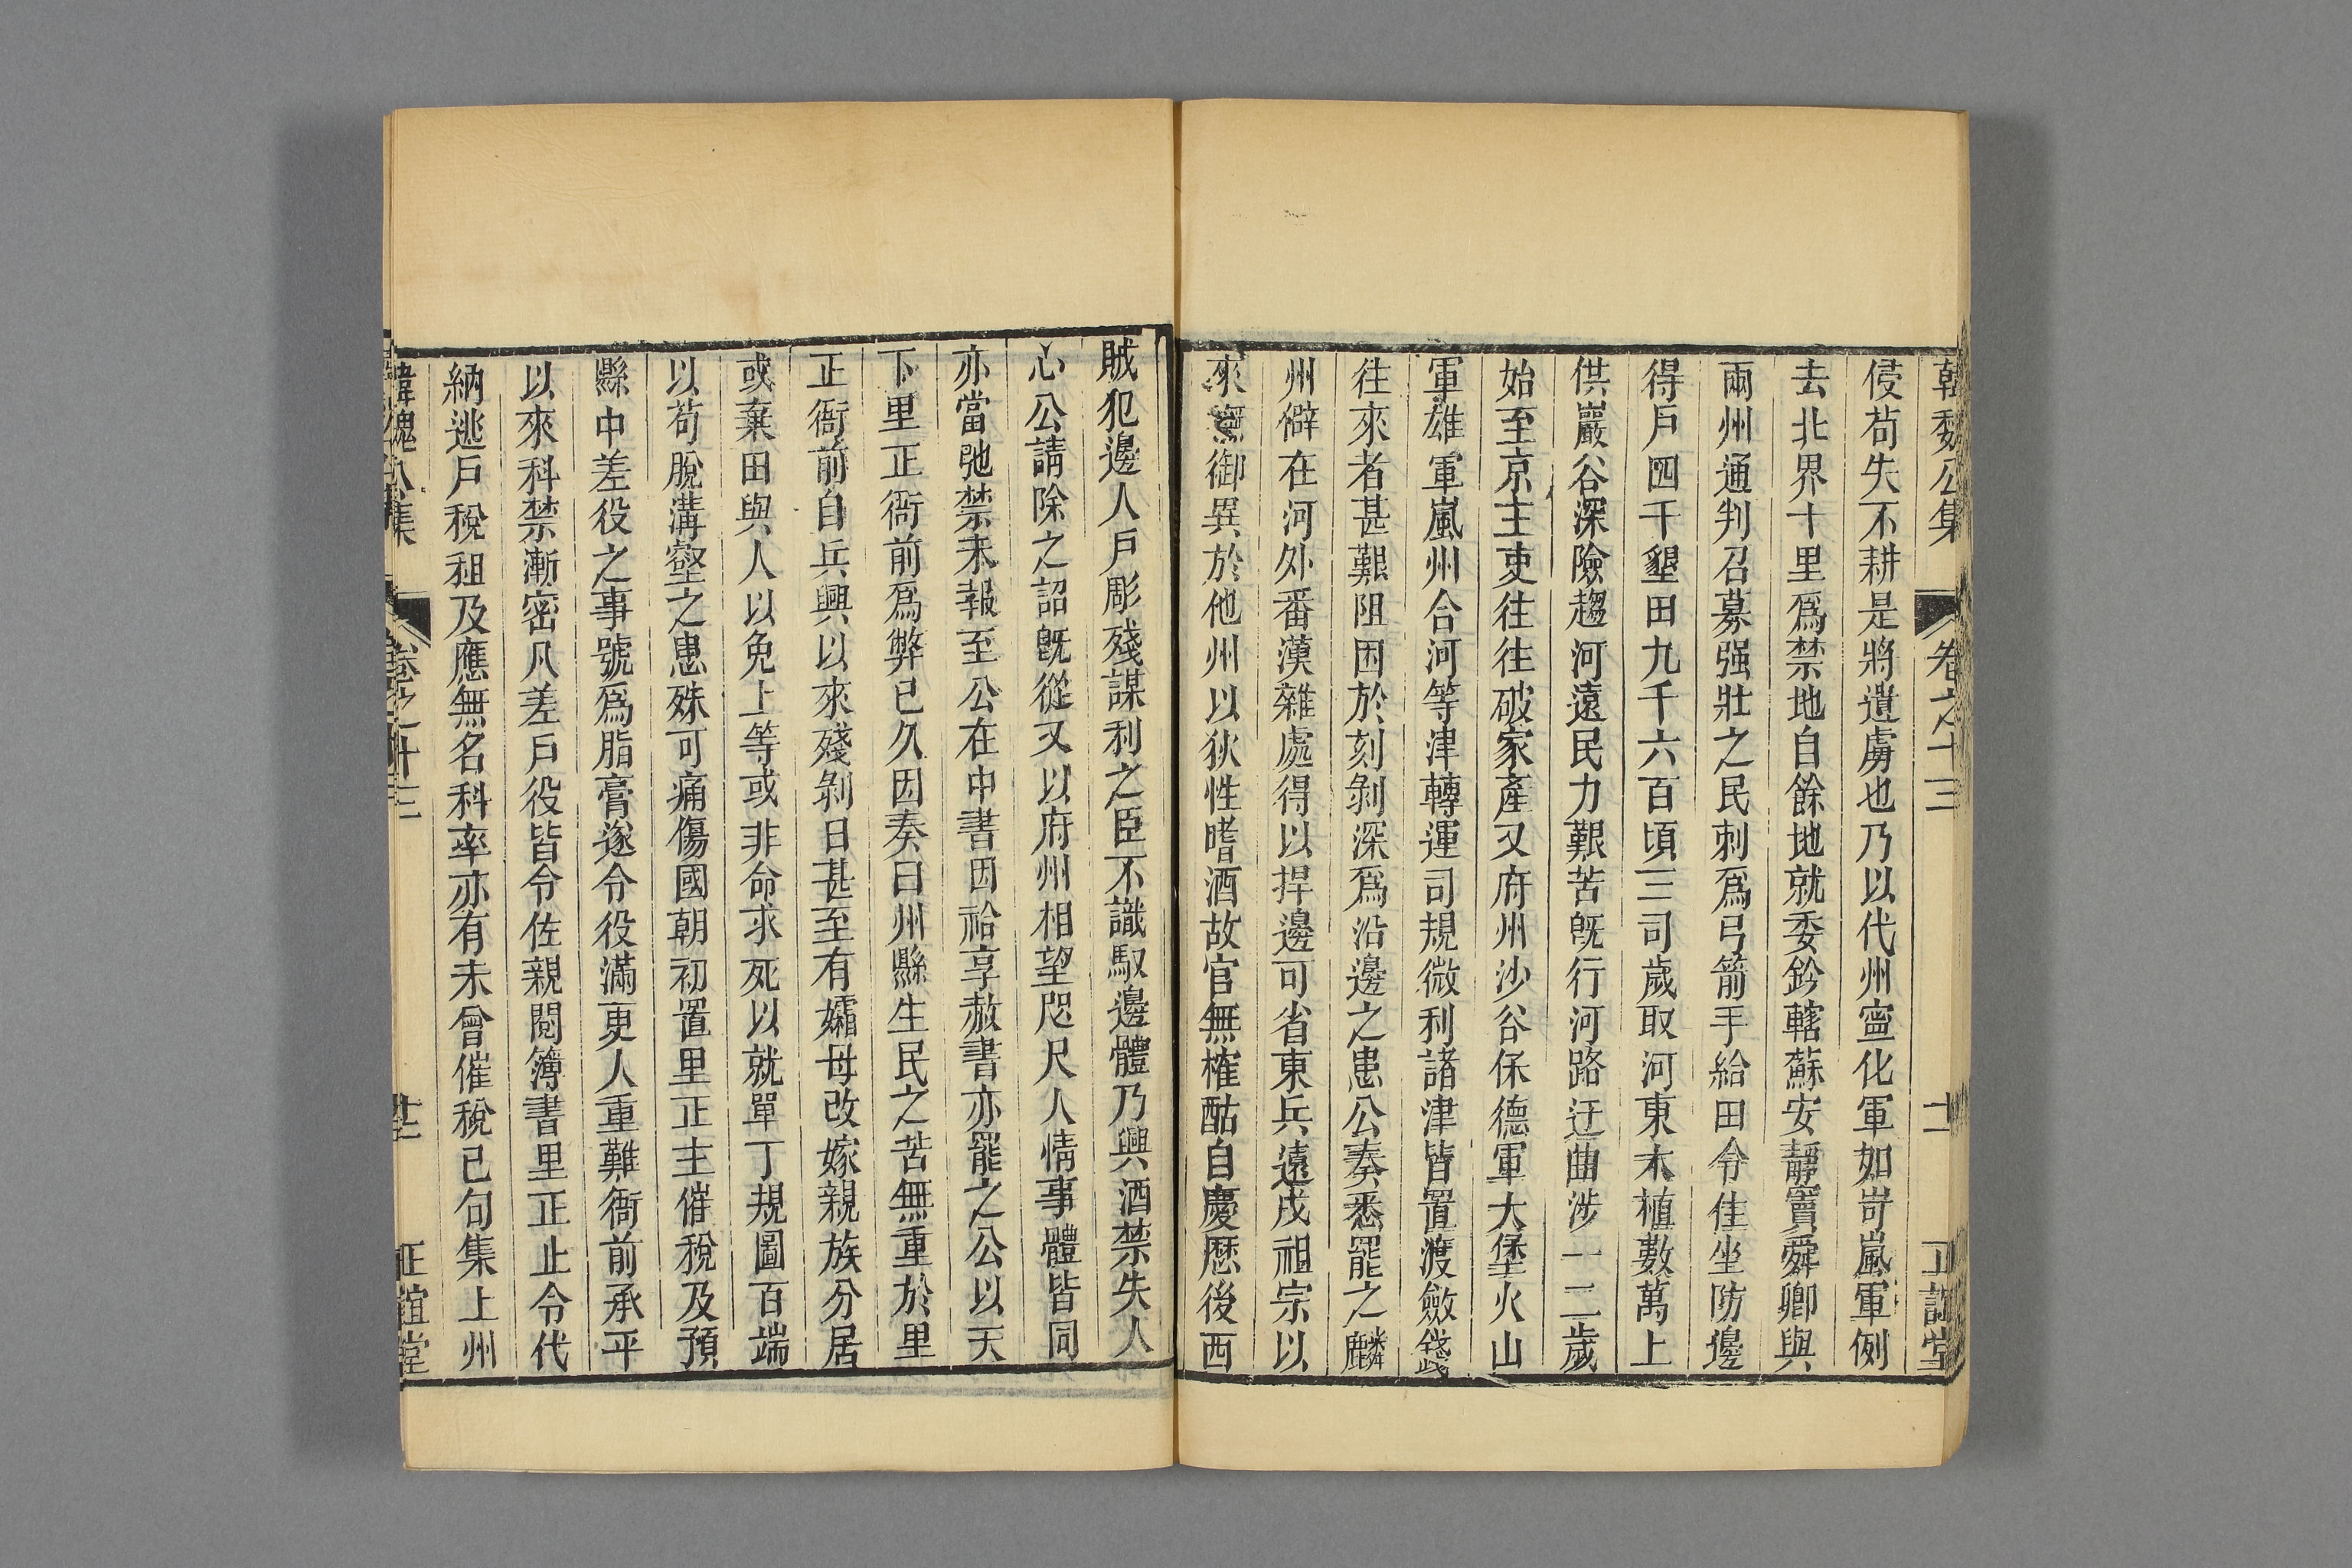 韓魏公集 卷之十三 十一 正誼堂
侵茍失不耕是將遺虜也乃以代州寧化軍如岢嵐軍例
去北界十里爲禁地自餘地就委鈐轄蘇安靜竇舜卿與
兩州通判召募强壯之民刺爲弓箭手給田令佳坐防邊
得戶四千墾田九千六百頃三司歲取河東木植數萬上
供巖谷深險趨河遠民力艱苦旣行河路迂曲涉一二歲
始至京主吏往往破家產又府州沙谷保德軍大堡火山
軍雄軍嵐州合河等津轉運司規微利諸津皆置渡斂錢
往來者甚艱阻困於刻剝深爲沿邊之患公奏悉罷之麟
州僻在河外番漢雜處得以捍邊可省東兵遠戍祖宗以
來御異於他州以狄性嗜酒故官無榷酤自慶曆後西
賊犯邊人戶彫殘謀利之臣不識馭邊體乃興酒禁失人
心公請除之詔旣從又以府州相望咫尺人情事體皆同
亦當弛禁未報至公在中書因祫享赦書亦罷之公以天
下里正衙前爲弊已久因奏曰州縣生民之苦無重於里
正衙前自兵興以來殘剝日甚至有孀母改嫁親族分居
或棄田與人以免上等或非命求死以就單丁規圖百端
以茍脫溝壑之患殊可痛傷國朝初置里正主催稅及預
縣中差役之事號爲脂膏遂令役滿更人重難衙前承平
以來科禁漸密凡差戶役皆令佐親閱簿書里正止令代
納逃戶稅租及應無名科率亦有未曾催稅已句集上州
韓魏公集 卷之十三 十二 正誼堂